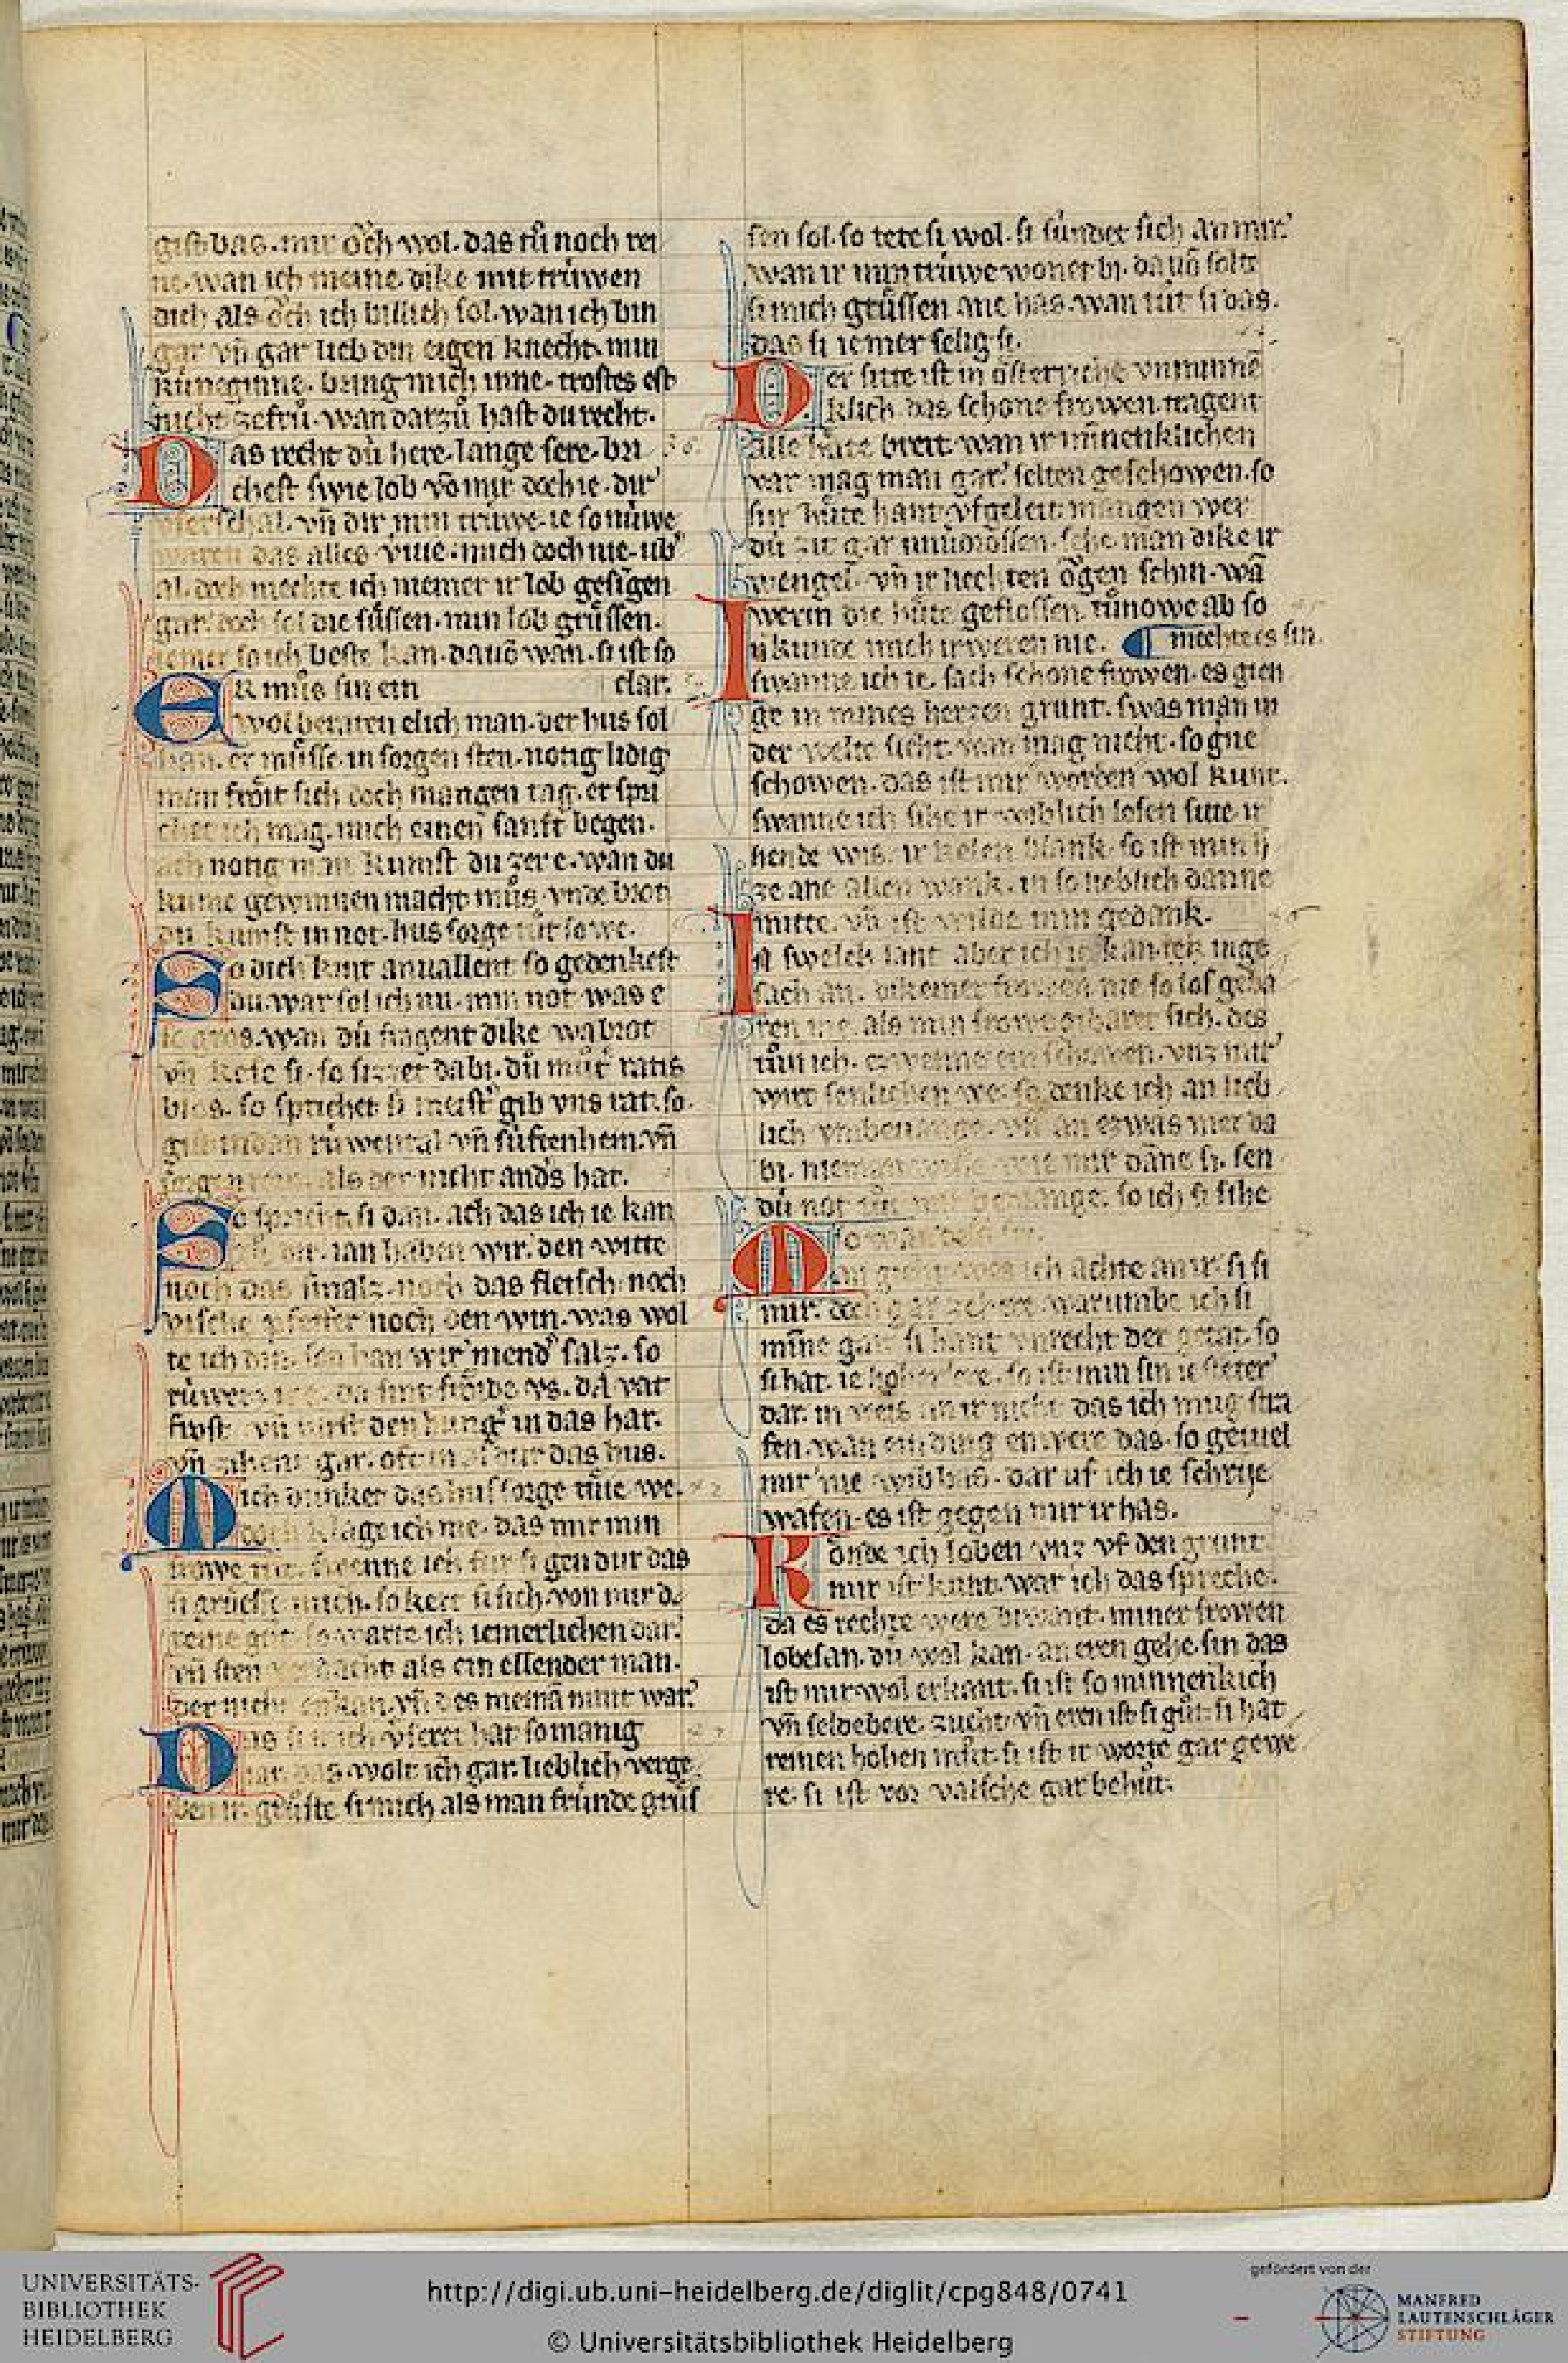 gist das. mir öch wol. das tů noch rei
ne. wan ich meine. dike mit trúwen
dich als öch ich billich sol. wan ich bin
gar vn̄ gar lieb din eigen knecht. min
kúneginne. bring mich inne. trostes est
nicht ze frů. wan darzů hast du recht.
Das recht dú here. lange sere. bri
chest swie lob vō mir doch ie. dir
erschal. vn̄ dir min trúwe. ie so núwe
waren das alles mich doch nie. úb
al. doch mechte ich niemer ir lob gesigen
gar. doch sol die süssen. min lob grüssen.
iemer so ich beste kan. da vō wan. si ist so
clar.
ER můs sin ein
wol beraten elich man. der hus sol
han. er müsse. in sorgen sten. notig lidig
man fröit sich doch mangen tag. er spri
chet ich mag. mich einen sanft began.
ach notig man kumst du zer e. wan du
kume gewinnen macht můs vnde brot
du kumst in not. hus sorge tůt so we.
So dich kint anuallent. so gedenkest
du. war sol ich nu. min not was e
so gros. wan dú fragent dike wa brot
vn̄ kese si. so sitzet da bi. dú můt rates
blos. so sprichet si meist gib vns rat. so
gist in dan rúwental vn̄ súftenhein. vn̄
sorgen als der nicht anders hat.
So spricht si dan. ach das ich ie kan
zů dir. ian haben wir. den witte
noch das smalz. noch das fleisch noch
vische pfeffer noch den win. was wol
te ich din. son han wir niender salz. so
rúwets da sint fröide vs. da rat
frost vn̄ durst den hunger in das har.
vn̄ ziehent gar. oft in al dur das hus.
Mich dunket das hussorge tůe we.
doch klage ich me. das mir min
frowe tůt. swenne ich fúr si gen dur das
si grüesse mich. so kert si sich. von mir d
reine gůt. so warte ich iemerlichen dar.
vn̄ sten verdacht als ein ellender man.
der nicht enkan. vn̄ des nieman nimt war.
Das si mich verseret hat so manig
iar. das wolt ich gar. lieblich verge
ben ir. grüste si mich als man frúnde grüs
sen sol. so tete si wol. si súndet sich an mir.
wan ir min trúwe wonet bi. da vō solt
si mich grüssen ane has. wan tůt si das.
das si iemer selig si.
Der sitte ist in österriche vnminne
klich. das schöne frowen. tragent
alle hüte breit. wan ir minneklichen
var mag man gar selten geschowen. so
sin hüte hant vf geleit. mangen wer
dú zit gar unuerdrossen. sehe man dike ir
wengel. vn̄ ir liechten ögen schin. wā
werin die hüte geflossen. tůnowe ab so
mechte es sin.
In kunde mich irweren nie.
swanne ich ie. sach schöne frowen. es gien
ge in mines herzen grunt. swas man in
der welte sicht. man mag nicht. so gne
schowen. das ist mir worden wol kunt.
swanne ich sihe ir wiblich losen sitte. ir
hende wis. ir kelen blank. so ist min h
ze ane allen wank. in so lieblich danne
mitte. vn̄ ist wilde min gedank.
In swelch lant aber ich ie kan. ich nige
sach an. dikeiner frowen nie so los geba
ren me. als min frowe gibaret sich. des
tůn ich. schowen. vnz mir
wirt senlichen we. so denke ich an lieb
lich vmbeuange. vn̄ an etwas mer da
bi. mir danne si. sen
dú not tůt mir bedrange. so ich si sihe
so wandels fri.
Man giht was ich achte an ir. si si
mir. doch gar ze her. warumbe ich si
minne gar. si hant vnrecht der getat. so
si hat. ie hoher ere. so ist min sin ie steter
dar. in weis an ir nicht das ich mug stra
fen. wan ein ding en were das. so geuiel
mir nie wib bas. dar vf ich ie schrije
wafen. es ist gegen mir ir has.
Könde ich loben vnz vf den grunt
mir ist kunt. war ich das spreche.
da es rechte were biwant. miner frowen
lobesan. dú wol kan. an eren gehe. sin das
ist mir wol erkant. si ist so minneklich
vn̄ seldebere. zucht vn̄ eren ist si gůt. si hat
reinen hohen můt. si ist ir worte gar gewe
re. si ist vor valsche gar behůt.
UNIVERSITÄTS-
BIBLIOTHEK
HEIDELBERG
http://digi.ub.uni-heidelberg.de/diglit/cpg848/0741
© Universitätsbibliothek Heidelberg
gefördert von der
MANFRED
LAUTENSCHLÄGER
STIFTUNG